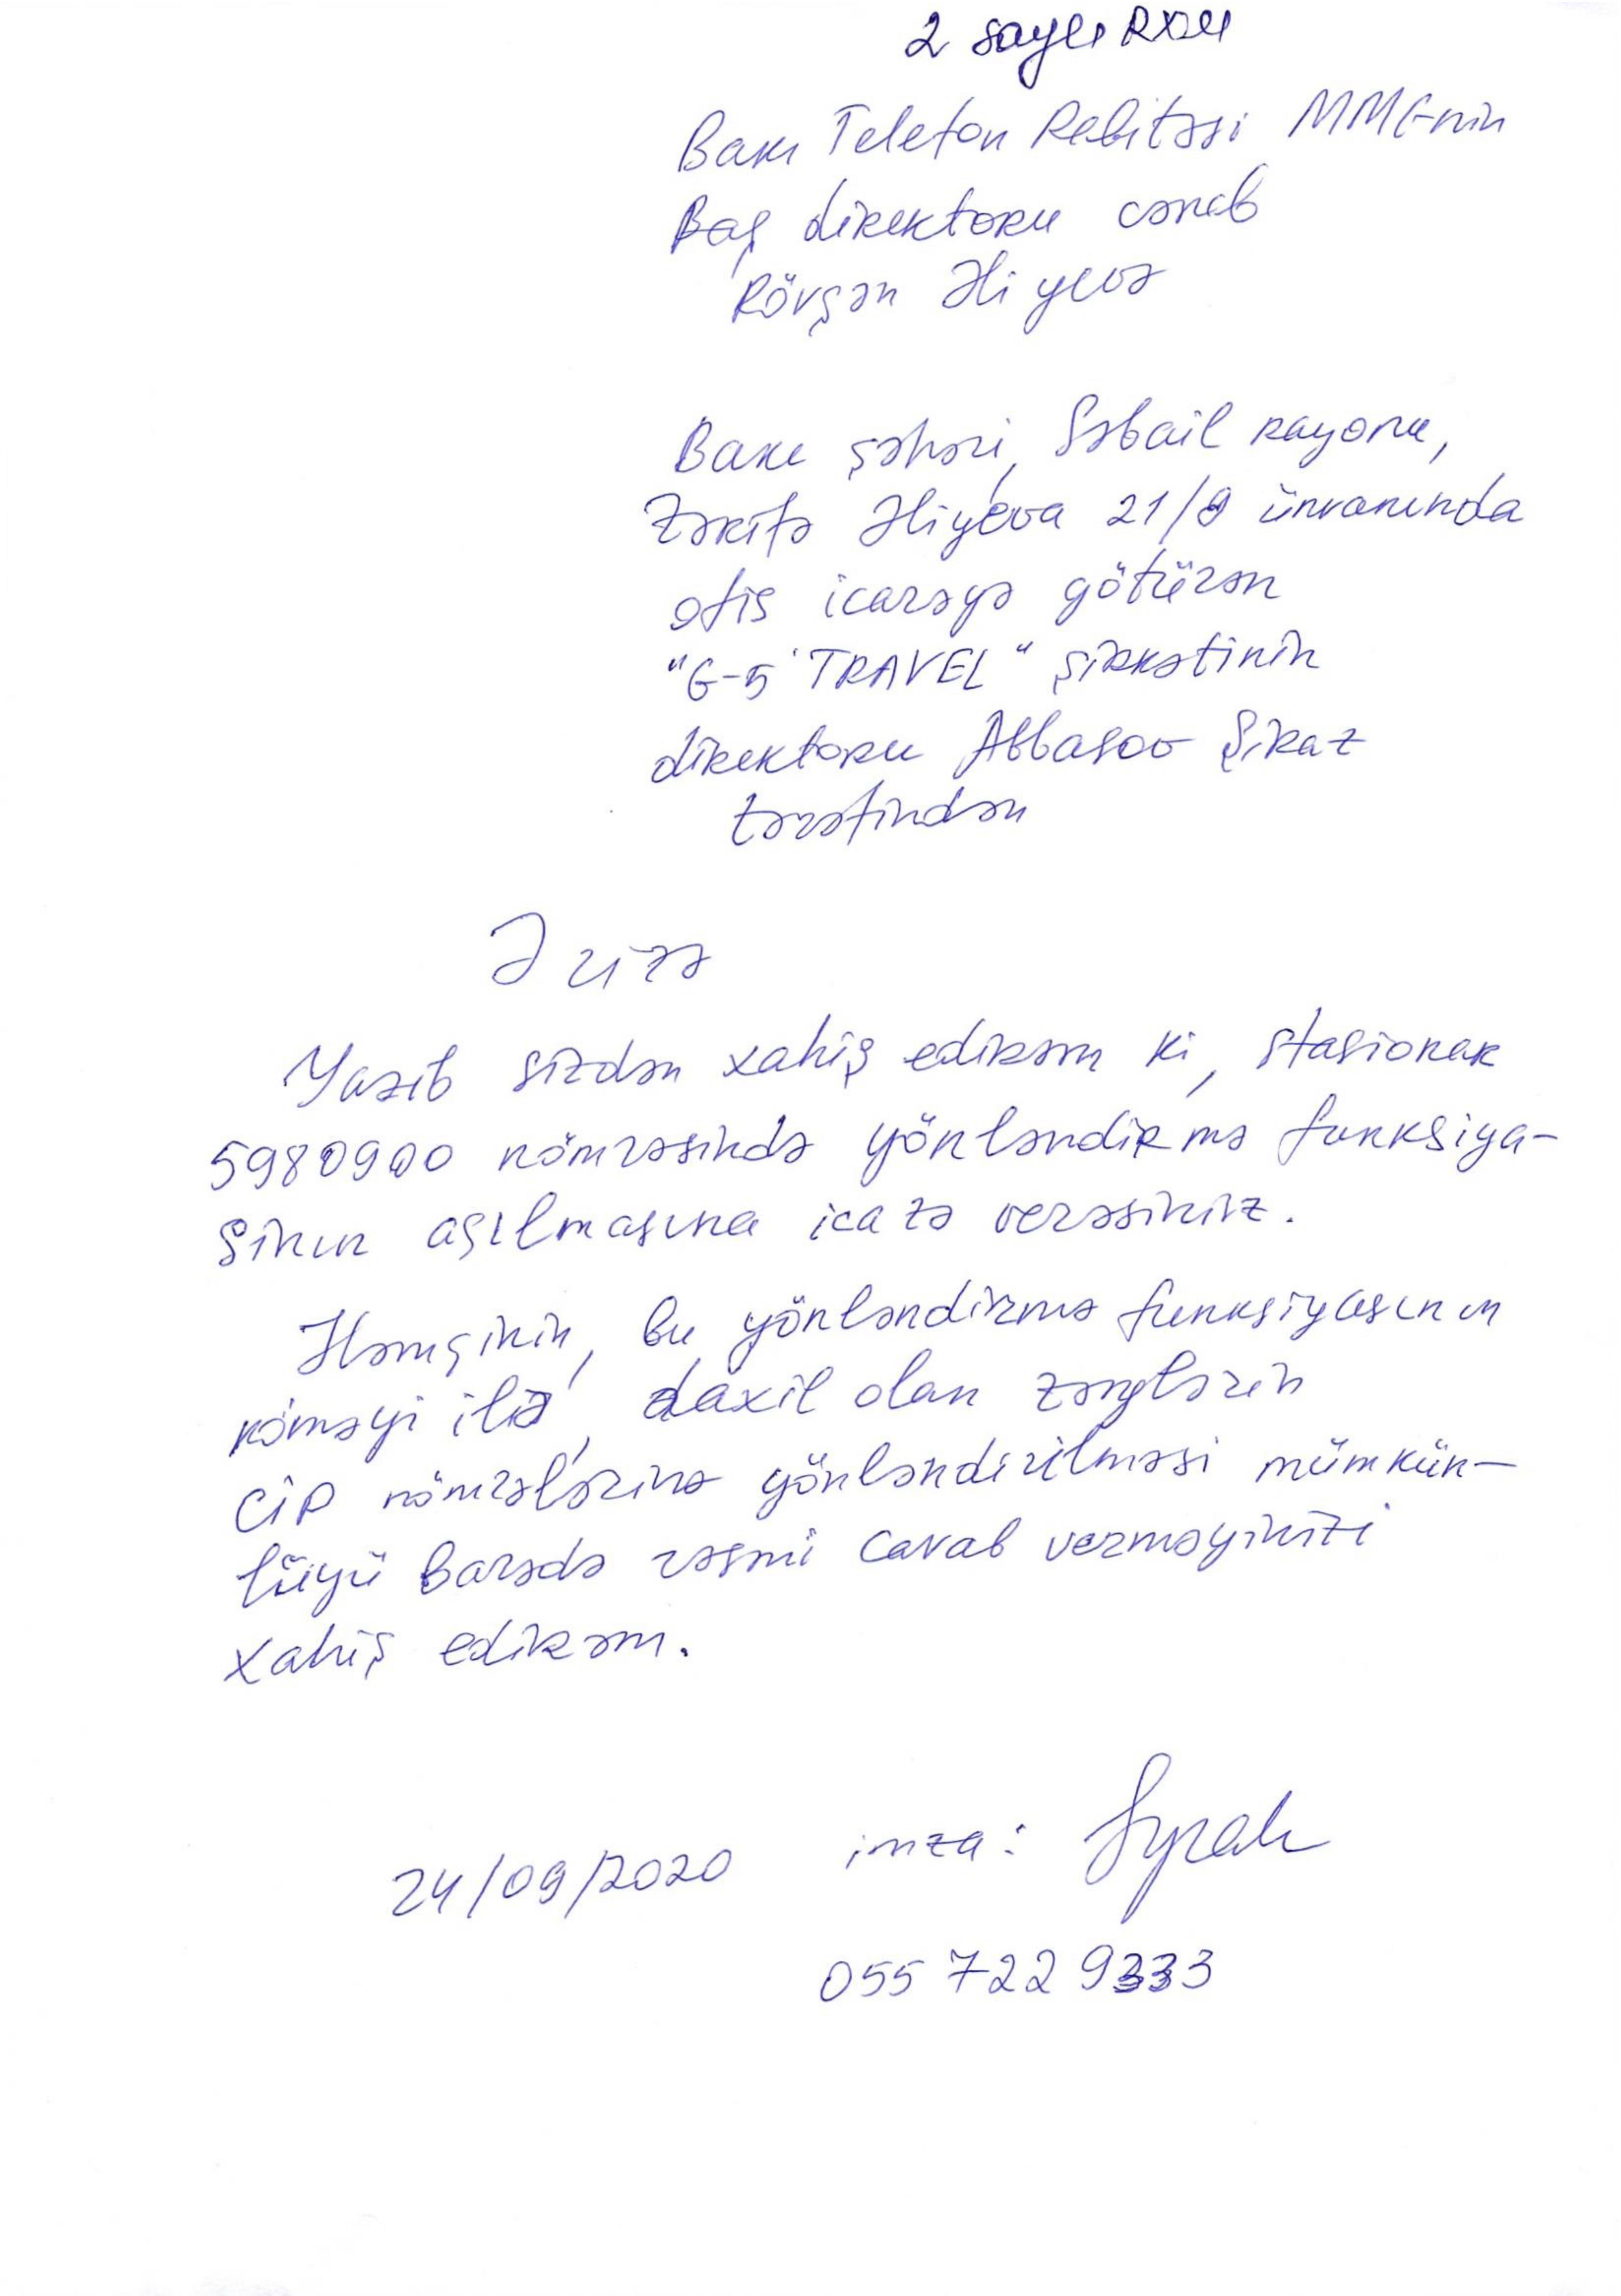 2 saylı RXM
Bakı Telefon Rabitəsi MMC-nin
Baş direktoru cənab
Rövşən Əliyevə
Bakı şəhəri, Səbail rayonu,
Zərifə Əliyeva 21/9 ünvanında
ofis icarəyə götürən
"G-5 TRAVEL" şirkətinin
direktoru Abbasov Şiraz
tərəfindən
Ərizə
Yazıb sizdən xahiş edirəm ki, stasionar
5980900 nömrəsində yönləndirmə funksiya-
sının açılmasına icazə verəsiniz.
Həmçinin, bu yönləndirmə funksiyasının
köməyi ilə, daxil olan zənglərin
CİP nömrələrinə yönləndirilməsi mümkün-
lüyü barədə rəsmi cavab verməyinizi
xahiş edirəm.
24/09/2020 imza:
055 722 9333